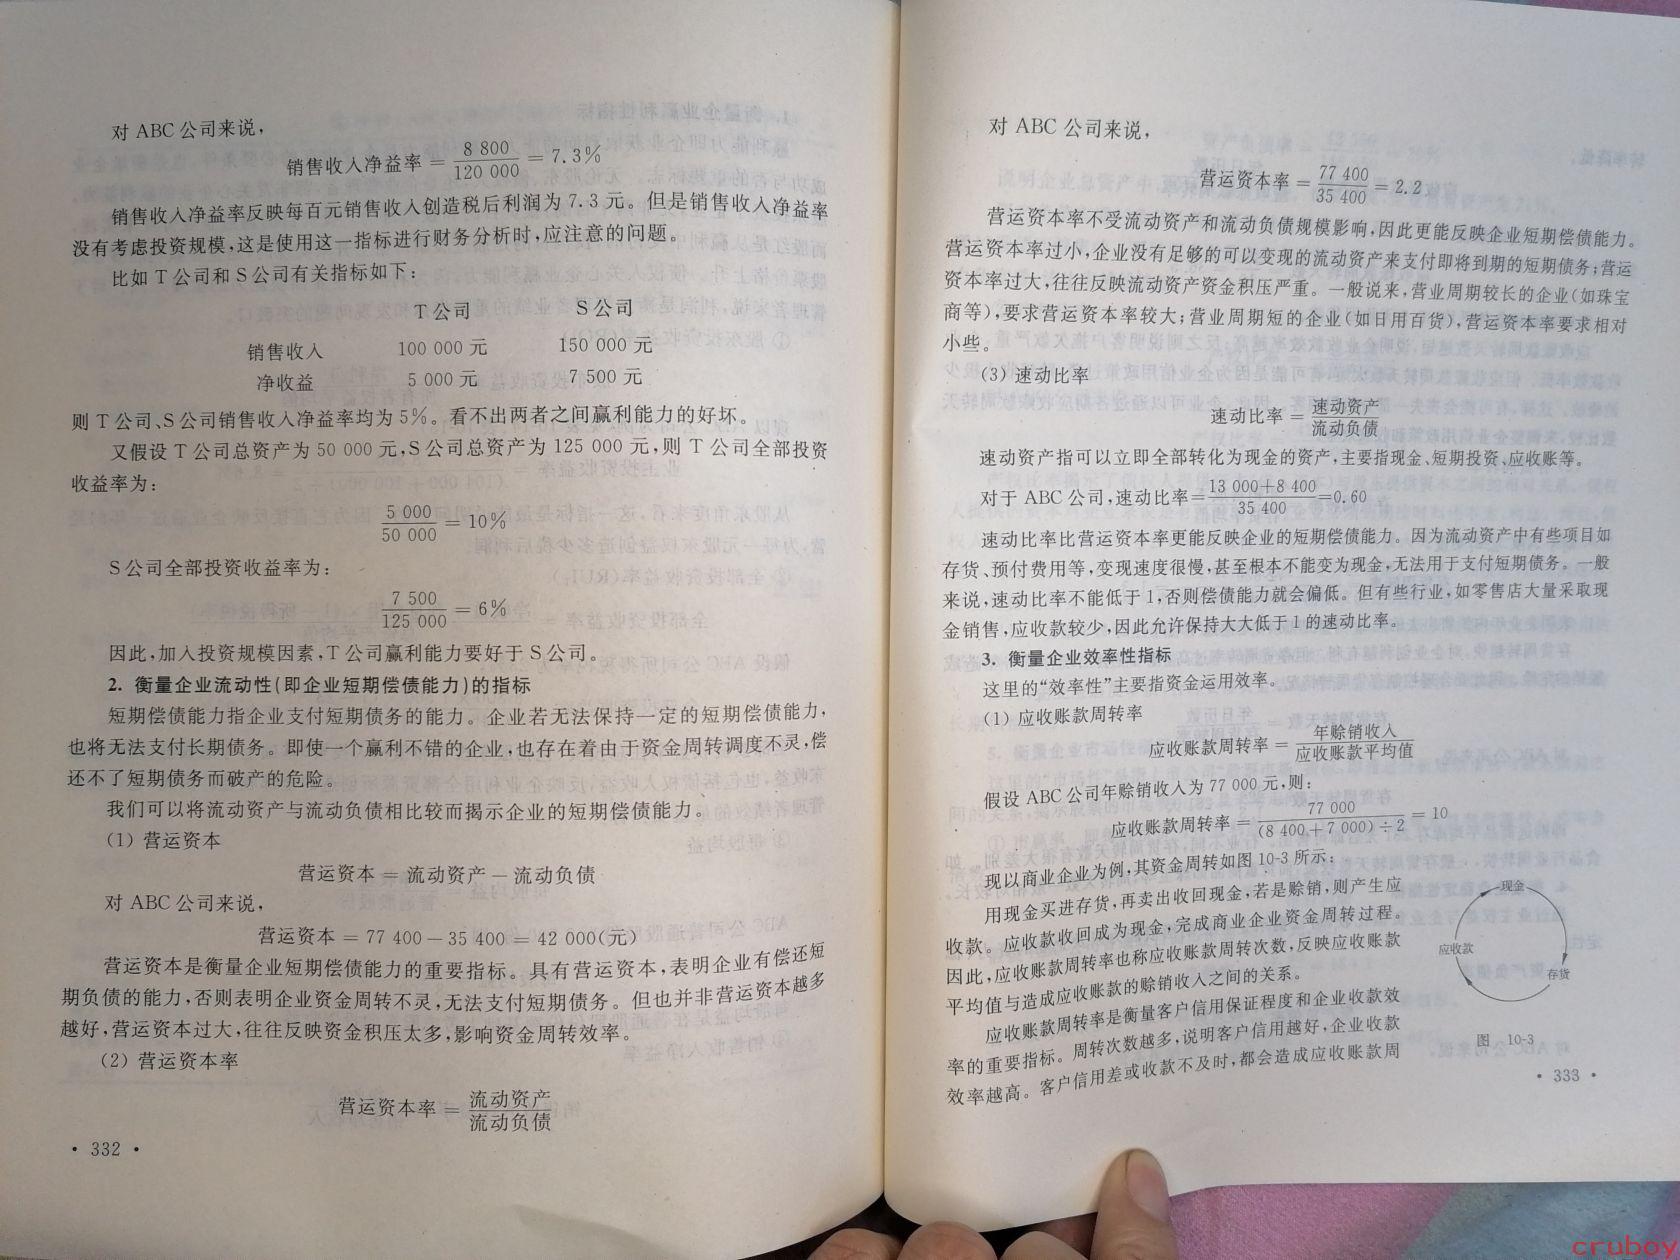 对 ABC 公司来说，
销售收入净益率 = 8 800 / 120 000 = 7.3%
销售收入净益率反映每百元销售收入创造税后利润为 7.3 元。但是销售收入净益率
没有考虑投资规模，这是使用这一指标进行财务分析时，应注意的问题。
比如 T 公司和 S 公司有关指标如下：
T 公司 S 公司
销售收入 100 000 元 150 000 元
净收益 5 000 元 7 500 元
则 T 公司、S 公司销售收入净益率均为 5%。看不出两者之间赢利能力的好坏。
又假设 T 公司总资产为 50 000 元，S 公司总资产为 125 000 元，则 T 公司全部投资
收益率为：
5 000 / 50 000 = 10%
S 公司全部投资收益率为：
7 500 / 125 000 = 6%
因此，加入投资规模因素，T 公司赢利能力要好于 S 公司。
2. 衡量企业流动性(即企业短期偿债能力)的指标
短期偿债能力指企业支付短期债务的能力。企业若无法保持一定的短期偿债能力，
也将无法支付长期债务。即使一个赢利不错的企业，也存在着由于资金周转调度不灵，偿
还不了短期债务而破产的危险。
我们可以将流动资产与流动负债相比较而揭示企业的短期偿债能力。
(1) 营运资本
营运资本 = 流动资产 － 流动负债
对 ABC 公司来说，
营运资本 = 77 400 － 35 400 = 42 000(元)
营运资本是衡量企业短期偿债能力的重要指标。具有营运资本，表明企业有偿还短
期负债的能力，否则表明企业资金周转不灵，无法支付短期债务。但也并非营运资本越多
越好，营运资本过大，往往反映资金积压太多，影响资金周转效率。
(2) 营运资本率
营运资本率 = 流动资产 / 流动负债
· 332 ·
对 ABC 公司来说，
营运资本率 = 77 400 / 35 400 = 2.2
营运资本率不受流动资产和流动负债规模影响，因此更能反映企业短期偿债能力。
营运资本率过小，企业没有足够的可以变现的流动资产来支付即将到期的短期债务；营运
资本率过大，往往反映流动资产资金积压严重。一般说来，营业周期较长的企业(如珠宝
商等)，要求营运资本率较大；营业周期短的企业(如日用百货)，营运资本率要求相对
小些。
(3) 速动比率
速动比率 = 速动资产 / 流动负债
速动资产指可以立即全部转化为现金的资产，主要指现金、短期投资、应收账等。
对于 ABC 公司，速动比率= 13 000+8 400 / 35 400 =0.60
速动比率比营运资本率更能反映企业的短期偿债能力。因为流动资产中有些项目如
存货、预付费用等，变现速度很慢，甚至根本不能变为现金，无法用于支付短期债务。一般
来说，速动比率不能低于 1，否则偿债能力就会偏低。但有些行业，如零售店大量采取现
金销售，应收款较少，因此允许保持大大低于 1 的速动比率。
3. 衡量企业效率性指标
这里的“效率性”主要指资金运用效率。
(1) 应收账款周转率
应收账款周转率 = 年赊销收入 / 应收账款平均值
假设 ABC 公司年赊销收入为 77 000 元，则：
应收账款周转率 = 77 000 / (8 400 + 7 000) ÷ 2 = 10
现以商业企业为例，其资金周转如图 10-3 所示：
用现金买进存货，再卖出收回现金，若是赊销，则产生应
收款。应收款收回成为现金，完成商业企业资金周转过程。
因此，应收账款周转率也称应收账款周转次数，反映应收账款
平均值与造成应收账款的赊销收入之间的关系。
应收账款周转率是衡量客户信用保证程度和企业收款效
率的重要指标。周转次数越多，说明客户信用越好，企业收款
效率越高。客户信用差或收款不及时，都会造成应收账款周
现金
应收款
存货
图 10-3
· 333 ·
cruboy